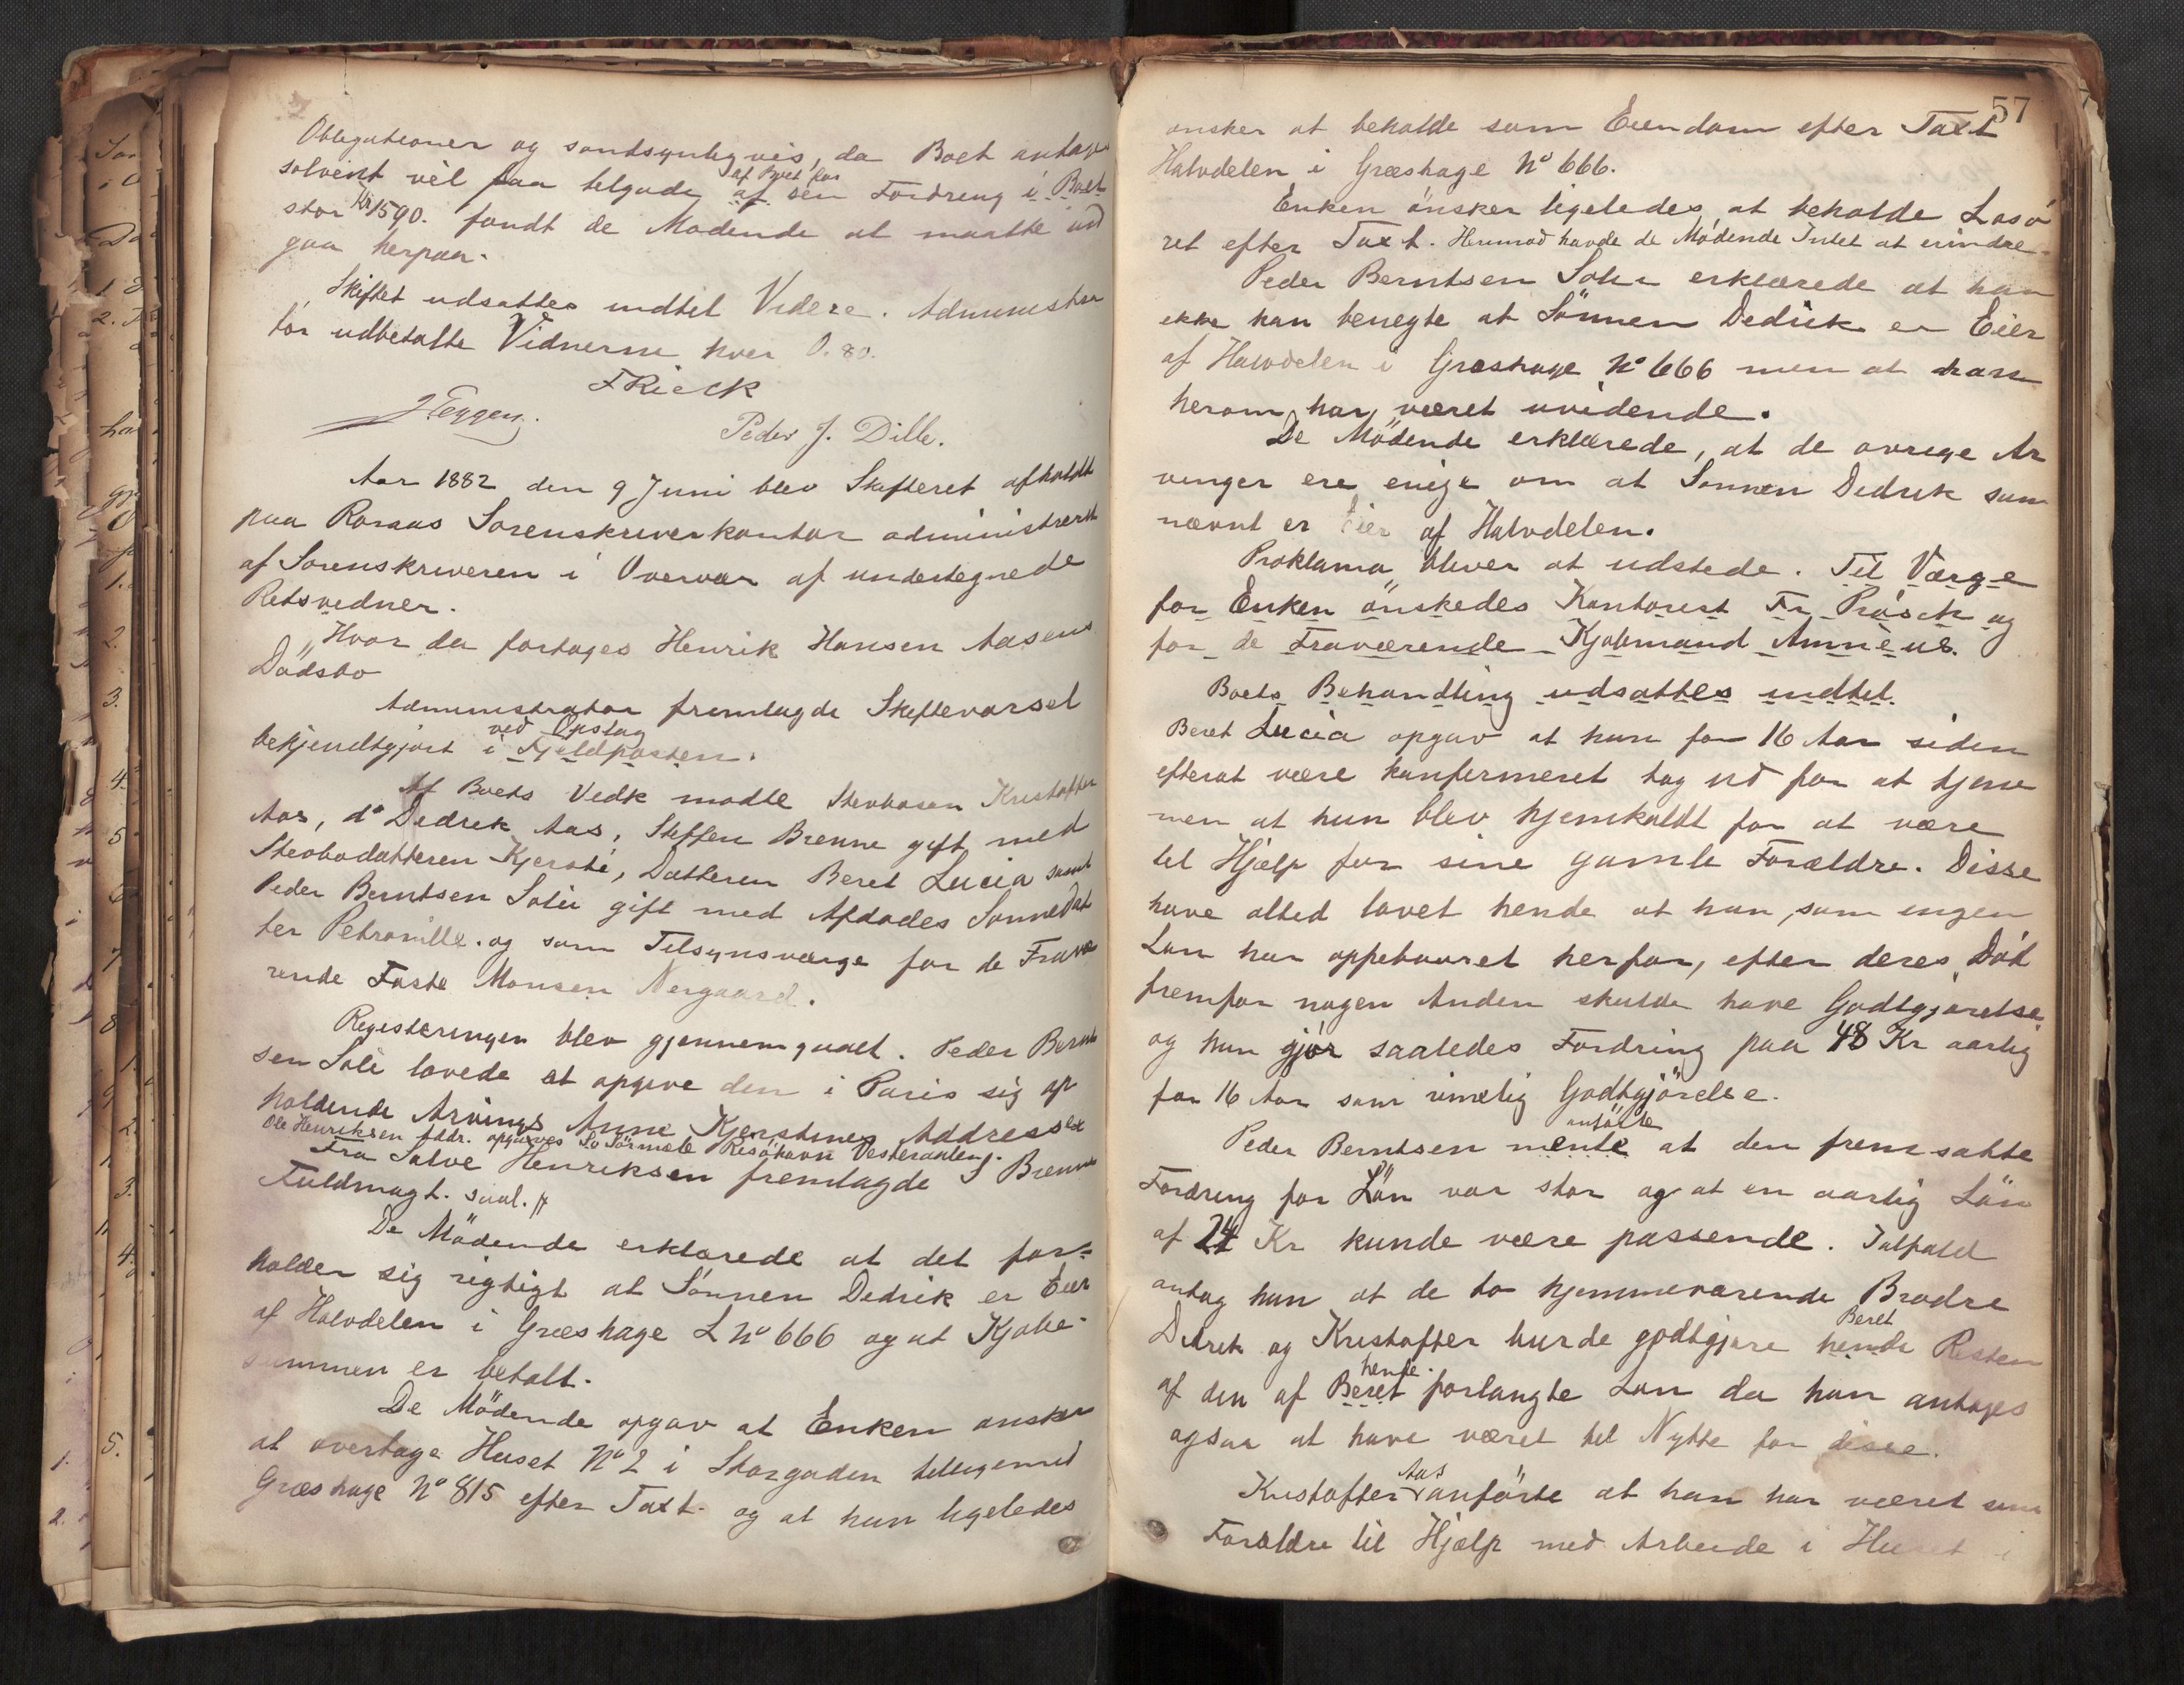 Obligationer og sandsynligvis, da Boet antages
solvent vil faa tilgode af sin Fordring i Boet
af Boet hos
stor Kr 1590. fandt de Mødende at maatte ind
gaa herpaa.
Skiftet udsattes indtil Videre. Administra
tor udbetalte Vidnerne hver 0.80.
F Rieck
J. Eggen.
Peder J. Dille.
Aar 1882 den 9 Juni blev Skifteret afholdt
paa Røraas Sorenskriverkontor administreret
af Sorenskriveren i Overvær af undertegnede
Retsvidner.
Hvor da foretages Henrik Hansen Aasens
Dødsbo
Administrator fremlagde Skiftevarsel
bekjendtgjort i Fjeldposten.
ved Opslag
Af Boets Vedk mødte Stervbosøn Kristoffer
Aas, do Dedrik Aas, Steffen Brenne gift med
Stervbodatteren Kjersti, Datteren Beret Lucia samt
Peder Berntsen Solie gift med Afdødes Sønnedat
ter Petronille. og som Tilsynsværge for de Fravæ
rende Faste Monsen Nergaard.
Registeringen blev gjennemgaaet. Peder Bernt
sen Soli lovede at opgive den i Paris sig op
holdende Arvings Anne Kjerstines Addresse
Ole Henriksen Addr. opgaves Lo Sørmole Risöhavn Vesteraalen.
Fra Salve Henriksen fremlagde S Brenne
Fuldmagt. saal.
De Mödende erklærede at det for=
holder sig rigtigt at Sönnen Dedrik er Eier
af Halvdelen i Græshage L No 666 og at Kjøbe-
summen er betalt.
De Mödende opgav at Enken ønsker
at overtage Huset No 2 i Storgaden tilligemed
Græshage No 815 efter Taxt og at hun ligeledes
57
ønsker at beholde som Eiendom efter Taxt
Halvdelen i Græshage No 666.
Enken önsker ligeledes at beholde Løsø
ret efter Taxt. Herimod havde de Mödende Intet at erindre.
Peder Berntsen Solie erklærede at han
ikke kan benegte at Sönnen Dedrik er Eier
af Halvdelen i Græshage No 666 men at han
herom har været uvidende.
De Mödende erklærede, at de øvrige Ar
vinger ere enige om at Sønnen Dedrik som
nævnt er Eier af Halvdelen.
Proklama bliver at udstede. Til Værge
for Enken önskedes Kontorist Fr Prösch og
for de Fraværende Kjøbmand Amnéus.
Boets Behandling udsattes indtil.
Beret Lucia opgav at hun for 16 Aar siden
efterat være konfirmeret tog ud for at tjene
men at hun blev hjemkaldt for at være
til Hjælp for sine gamle Forældre. Disse
have altid lovet hende at hun, som ingen
Løn har oppebaaret herfor, efter deres Död
fremfor nogen Anden skulde have Godtgjørelse,
og hun gjör saaledes Fordring paa 48 Kr aarlig
for 16 Aar som rimelig Godtgjörelse.
Peder Berntsen mente at den fremsatte
anförte
Fordring for Lön var stor og at en aarlig Lön
af 24 Kr kunde være passende. Ialfald
antog han at de to hjemmeværende Brødre
Didrik og Kristoffer burde godtgjøre hende Resten
Beret
af den af Beret forlangte Løn da hun antages
hende
ogsaa at have været til Nytte for disse.
Kristoffer anförte at han har været sine
Aas
Forældre til Hjælp med Arbeide i Huset i